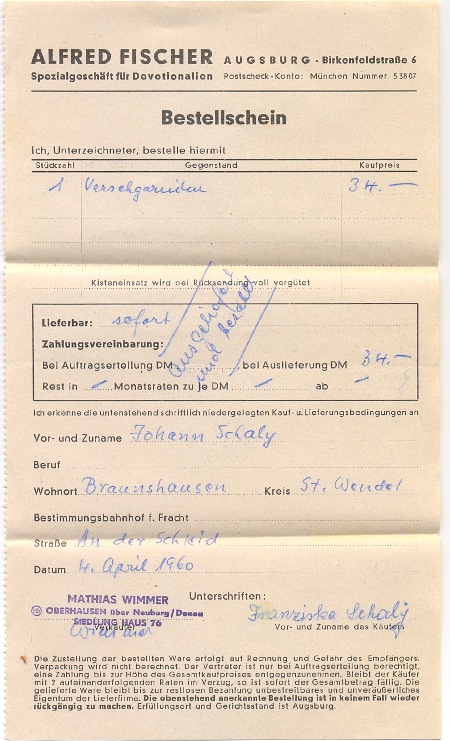 ALFRED FISCHER AUGSBURG · Birkenfeldstraße 6
Spezialgeschäft für Devotionalien Postscheck-Konto: München Nummer 53807
Bestellschein
Ich, Unterzeichneter, bestelle hiermit
Stückzahl Gegenstand Kaufpreis
1 Versehgarnitur 34.—
Kisteneinsatz wird bei Rücksendung voll vergütet
ausgeliefert
und bezahlt
Lieferbar: sofort
Zahlungsvereinbarung:
Bei Auftragserteilung DM, bei Auslieferung DM 34.—
Rest in — Monatsraten zu je DM — ab —
Ich erkenne die untenstehend schriftlich niedergelegten Kauf- u. Lieferungsbedingungen an
Vor- und Zuname Johann Schaly
Beruf
Wohnort Braunshausen Kreis St. Wendel
Bestimmungsbahnhof f. Fracht
Straße An der Scheid
Datum 4. April 1960
MATHIAS WIMMER Unterschriften:
OBERHAUSEN über Neuburg/Donau
SIEDLUNG HAUS 76
Wimmer Franziska Schaly
Verkäufer Vor- und Zuname des Käufers
Die Zustellung der bestellten Ware erfolgt auf Rechnung und Gefahr des Empfängers.
Verpackung wird nicht berechnet. Der Vertreter ist nur bei Auftragserteilung berechtigt,
eine Zahlung bis zur Höhe des Gesamtkaufpreises entgegenzunehmen. Bleibt der Käufer
mit 2 aufeinanderfolgenden Raten im Verzug, so ist sofort der Gesamtbetrag fällig. Die
gelieferte Ware bleibt bis zur restlosen Bezahlung unbestreitbares und unveräußerliches
Eigentum der Lieferfirma. Die obenstehend anerkannte Bestellung ist in keinem Fall wieder
rückgängig zu machen. Erfüllungsort und Gerichtsstand ist Augsburg.